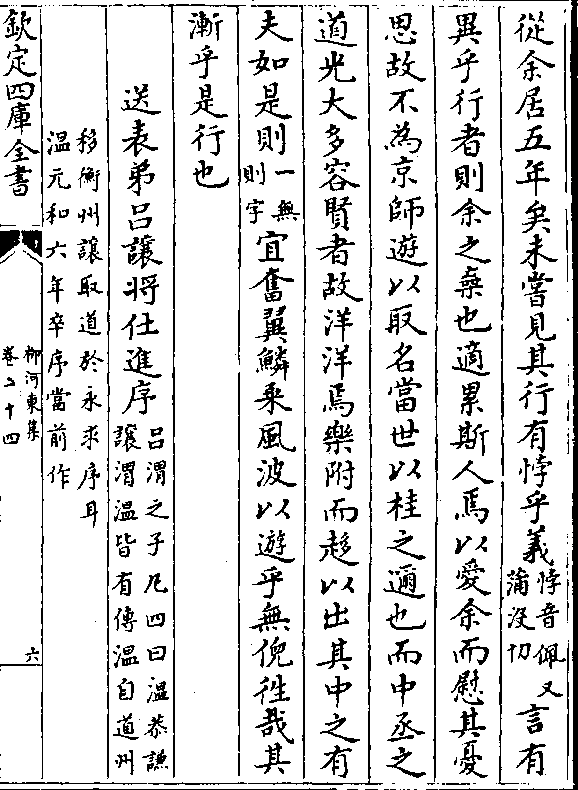 從余居五年矣未嘗見其行有悖乎義悖音佩又蒲没切言有
異乎行者則余之棄也適累斯人焉以愛余而慰其憂
思故不為京師遊以取名當世以桂之邇也而中丞之
道光大多容賢者故洋洋焉樂附而趍以出其中之有
夫如是則一無則字宜奮翼鱗乗風波以遊乎無倪徃哉其
漸乎是行也
送表弟呂讓將仕進序呂渭之子凡四曰溫恭謙讓渭溫皆有傳溫自道州
移衡州讓取道於永求序耳
溫元和六年卒序當前作
欽定四庫全書
柳河東集
卷二十四
六